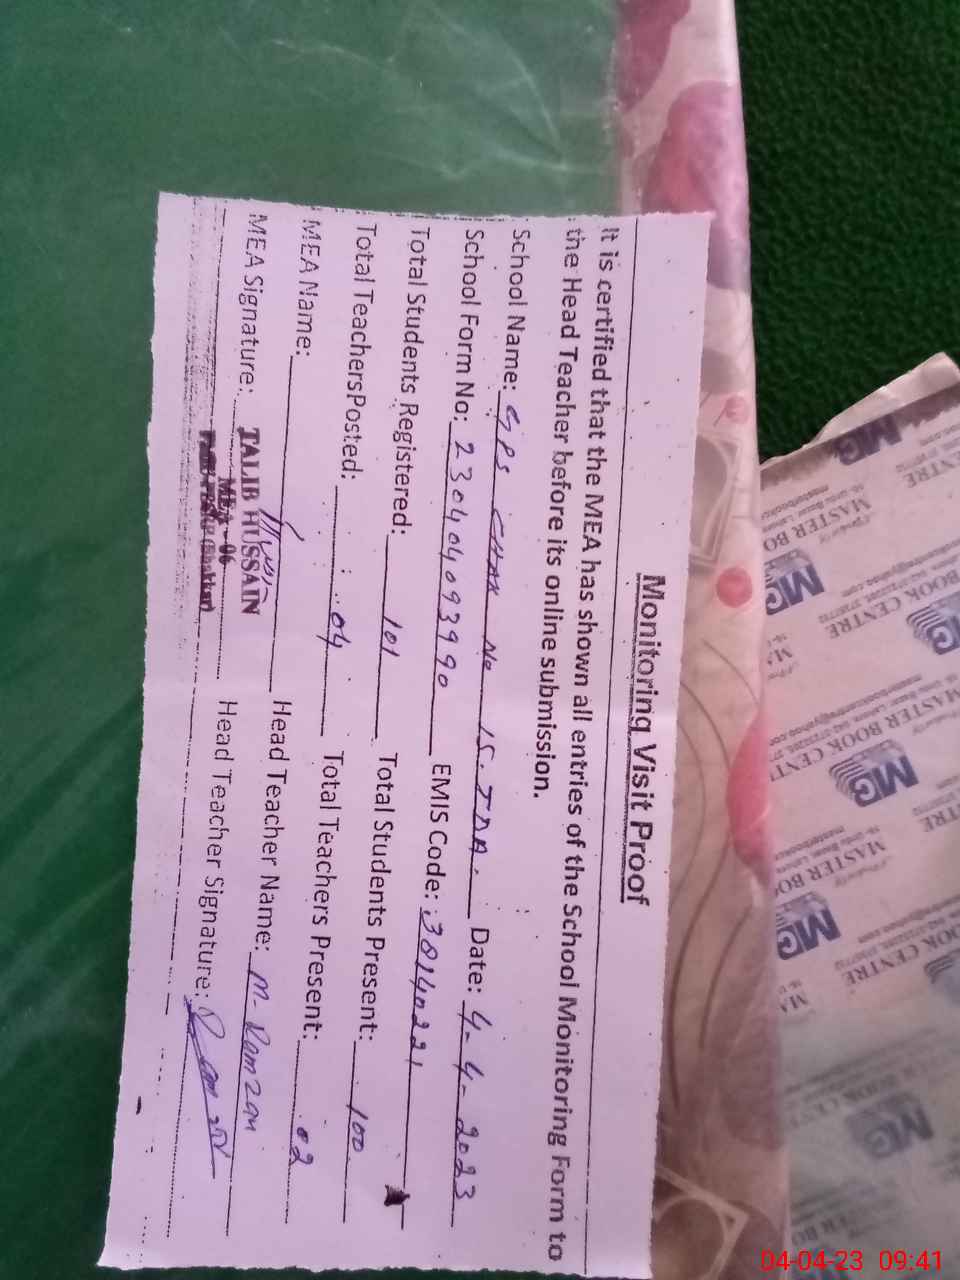 Monitoring Visit Proof
It is certified that the MEA has shown all entries of the School Monitoring Form to
the Head Teacher before its online submission.
School Name: GPS CHAK No 15-TDA. Date: 4-4-2023
School Form No: 2304040939 90 EMIS Code: 38140221
Total Students Registered: 101 Total Students Present: 100
Total TeachersPosted: 04 Total Teachers Present: 02
MEA Name: Head Teacher Name: M. Ramzan
MEA Signature: Head Teacher Signature:
TALIB HUSSAIN
MEA - 06
(Bhakkar)
MG
MASTER BOOK CENTRE
MG
MASTER BOOK CENTRE
MG
MASTER BOOK CENTRE
MG
MG
04-04-23 09:41